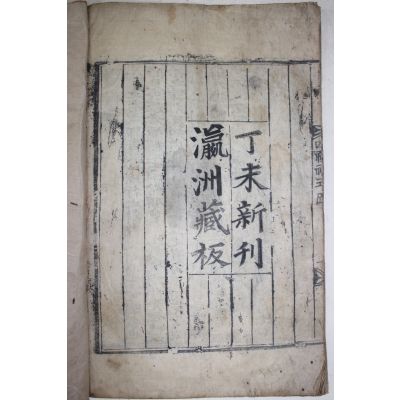 丁未新刊
瀛洲藏板